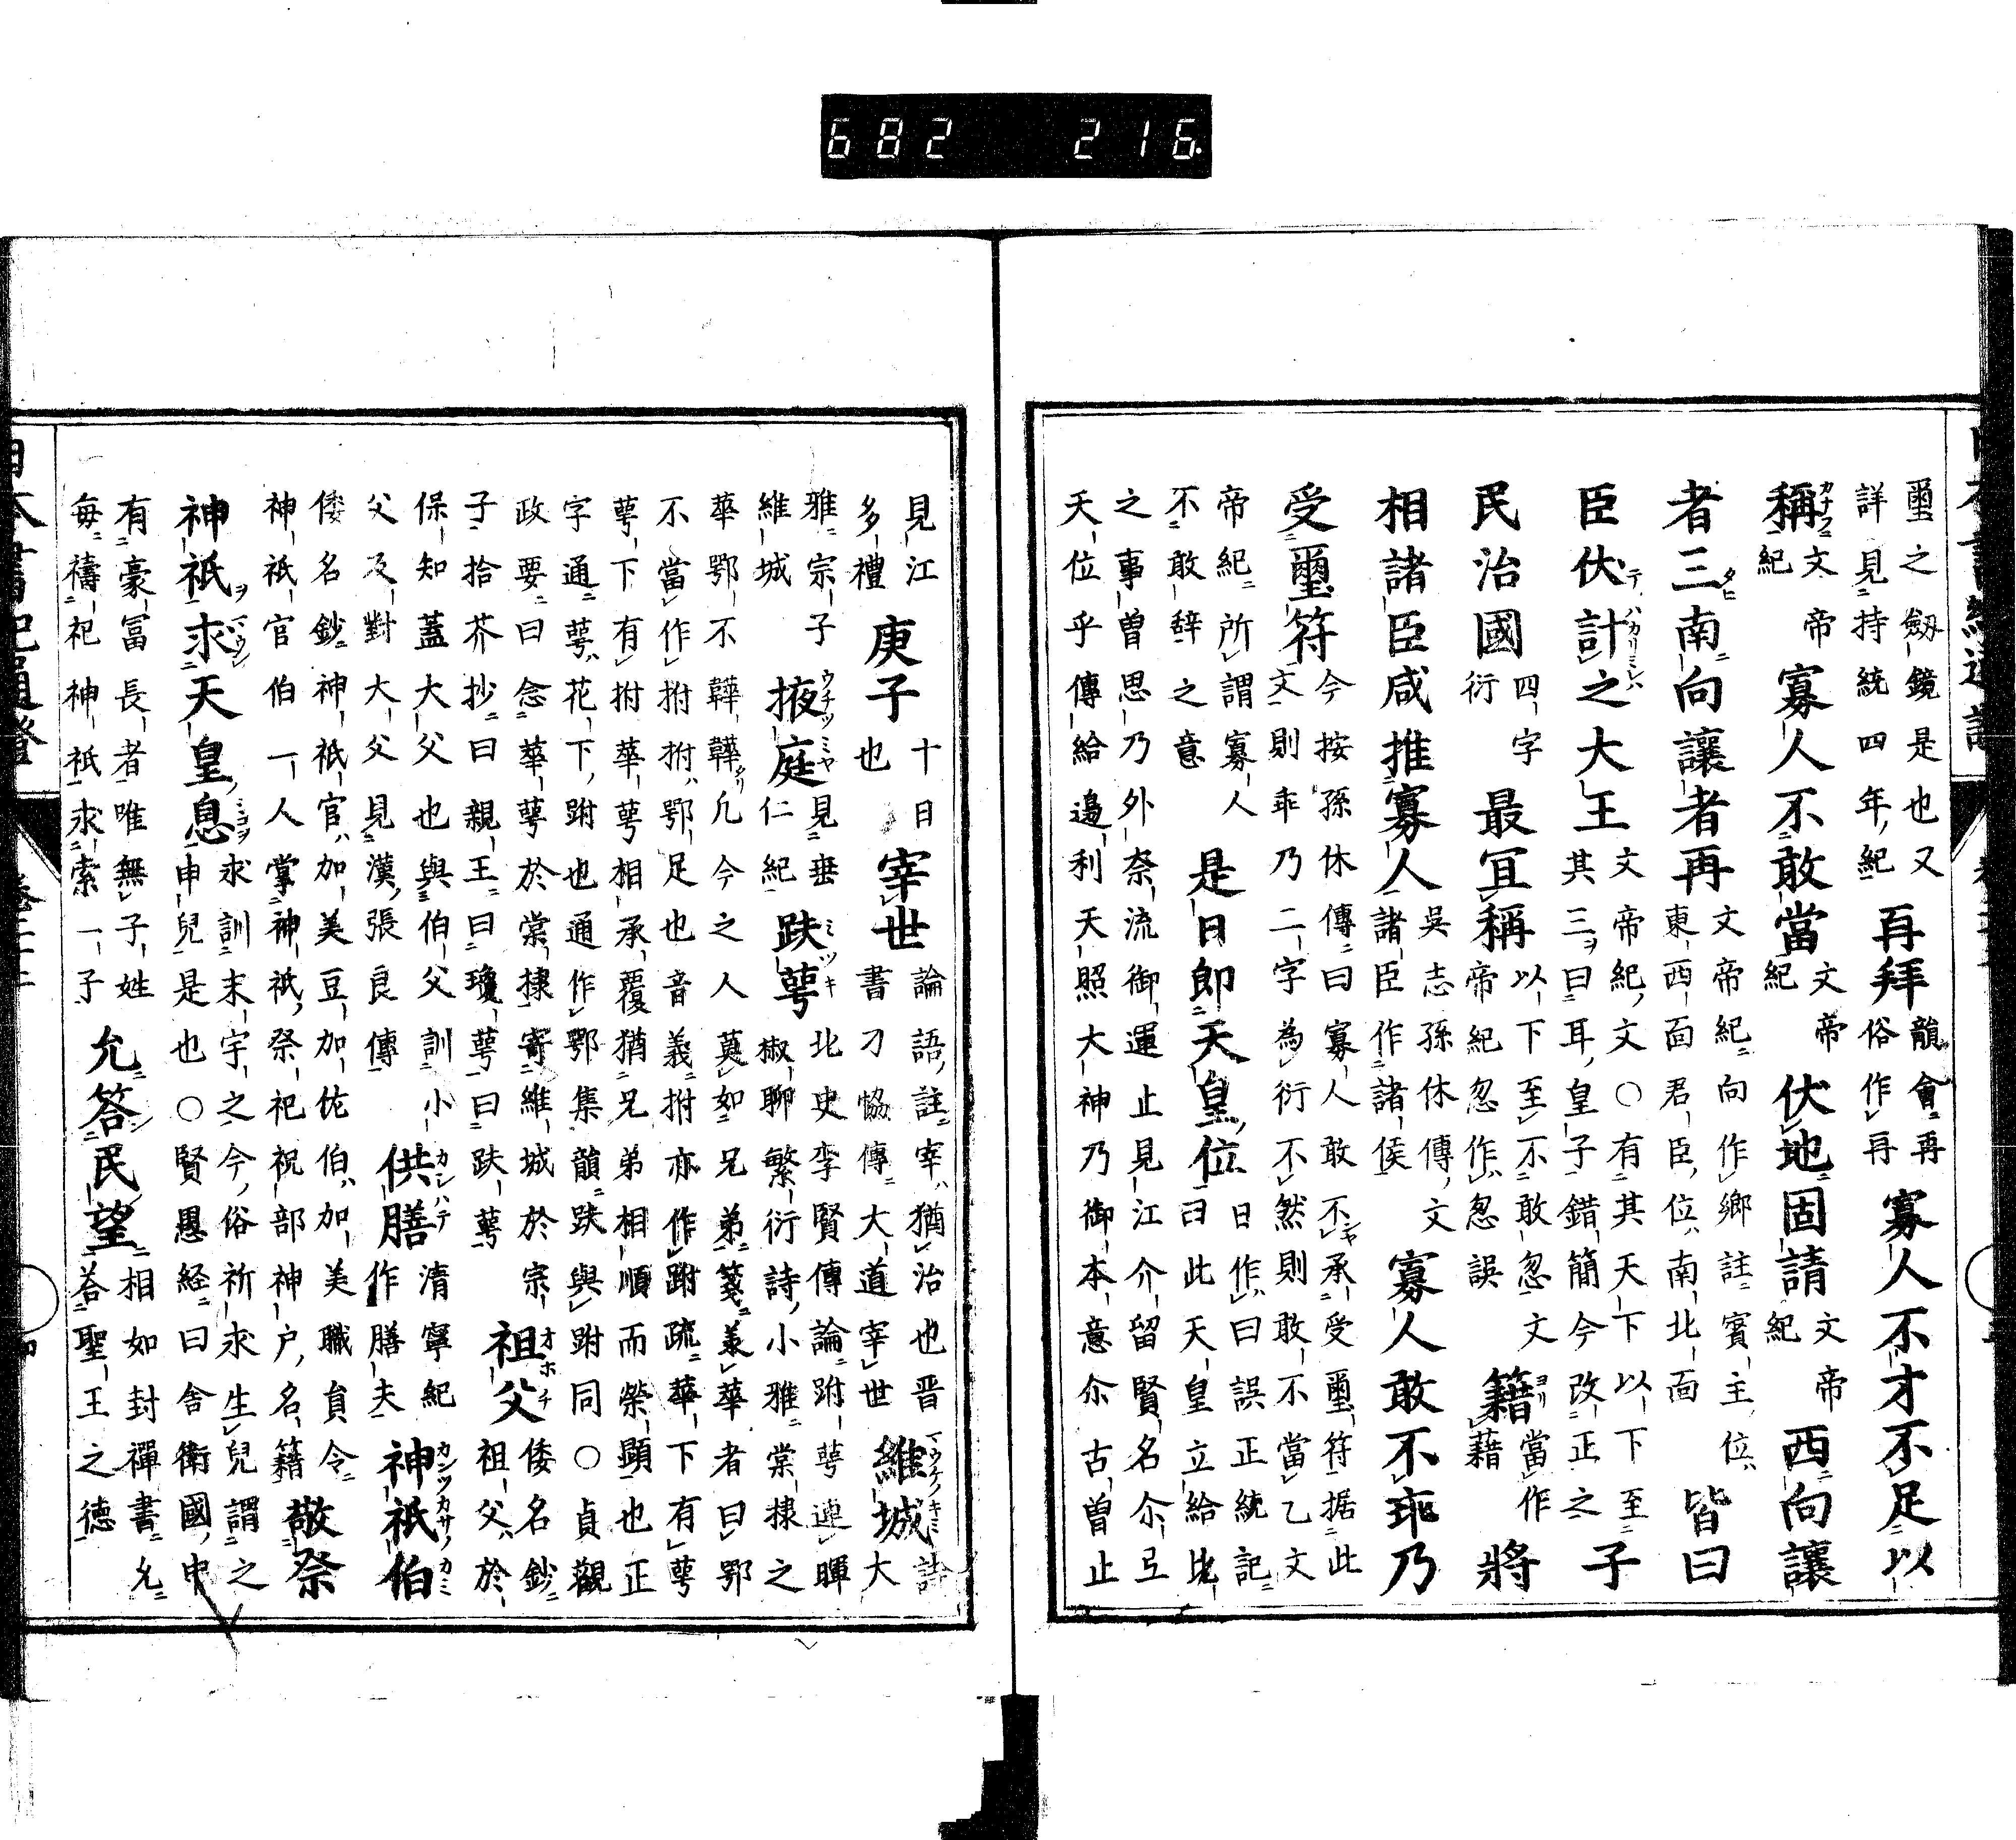 璽之劔鏡是也又
詳見持統四年紀
再拜
龍會再
俗作再
寡人不才不足以
稱
文帝
紀
寡人不敢當
文帝
紀
伏地固請
文帝
紀
西向讓
者三南向讓者再
文帝紀向作鄉註賓主位
東西面君臣位南北面
皆曰
臣伏計之大王
文帝紀文○有其天下以下至
其三曰耳皇子錯簡今改正之
子
民治國
四字
衍
最冝稱
以下至不敢忽文
帝紀忽作忽誤
籍
當作
藉
將
相諸臣咸推寡人
吳志孫休傳文
諸臣作諸侯
寡人敢不乖乃
受璽符
今按孫休傳曰寡人敢不承受璽符据此
文則乖乃二字為衍不然則敢不當乙文
帝紀所謂寡人
不敢辞之意
是日即天皇位
日作曰誤正統記
曰此天皇立給比
之事曽思乃外奈流御運止見江介留賢名尒弖
天位乎傳給邉利天照大神乃御本意尒古曽止
見江
多禮
庚子
十日
也
宰世
論語註宰猶治也晋
書刁恊傳大道宰世
維城
詩
大
雅宗子
維城
掖庭
見垂
仁紀
趺萼
北史李賢傳論跗萼連暉
椒聊繁衍詩小雅棠棣之
華鄂不韡韡凢今之人莫如兄弟箋義華者曰鄂
不當作拊拊鄂足也音義拊亦作跗疏華下有萼
萼下有拊華萼相承覆猶兄弟相順而榮顯也正
字通萼花下跗也通作鄂集韻趺與跗同○貞觀
政要曰念華萼於棠棣寄維城於宗
子拾芥抄曰親王曰瓊萼曰趺萼
祖父
倭名鈔
祖父於
保知蓋大父也與伯父訓小
父及對大父見漢張良傳
供膳
清寧紀
作膳夫
神祇伯
倭名鈔神祇官加美豆加佐伯加美職員令
神祇官伯一人掌神祇祭祀祝部神戸名籍
敬祭
神祇求天皇息
求訓末宇之今俗祈求生兒謂之
申兒是也○賢愚経曰舎衛國中
有豪冨長者唯無子姓
每禱祀神祇求索一子
允答民望
相如封禪書允
荅聖王之德
682 216